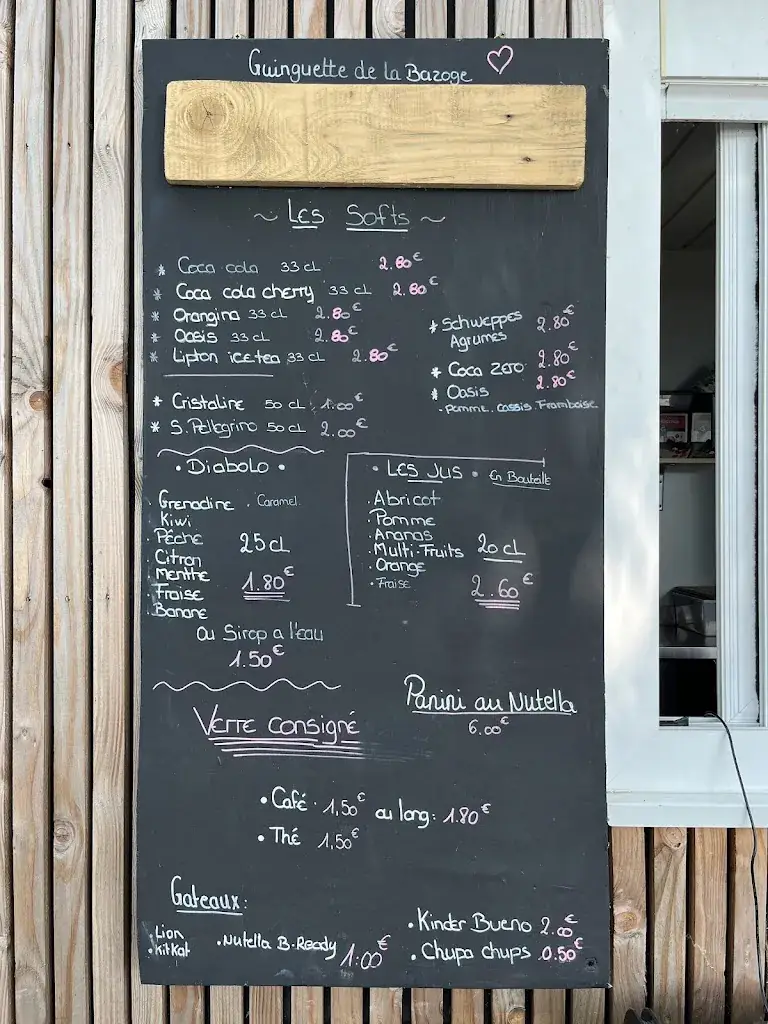 Guinguette de la Bazoge ♡
~ Les Softs ~
* Coca cola 33 cL 2.80€
* Coca cola cherry 33 cL 2.80€
* Orangina 33 cL 2.80€
* Oasis 33 cL 2.80€
* Lipton ice tea 33 cL 2.80€
* Cristaline 50 cL 1.00€
* S.Pellegrino 50 cL 2.00€
* Schweppes 2.80€
Agrumes
* Coca zero 2.80€
* Oasis 2.80€
- Pomme. Cassis. Framboise
• Diabolo •
Grenadine . Caramel.
. Kiwi
. Pêche
Citron
Menthe
Fraise
. Banane
25 cL
1.80€
Ou Sirop a l'eau
1.50€
• Les Jus • En Bouteille
. Abricot
. Pomme
. Ananas
. Multi-Fruits
. Orange
. Fraise
20 cL
2.60€
Verre consigné
Panini au Nutella
6.00€
• Café . 1,50€ ou long : 1.80€
• Thé 1,50€
Gateaux :
. Lion
. KitKat
• Nutella B-Ready 1.00€
• Kinder Bueno 2.00€
• Chupa chups 0.50€